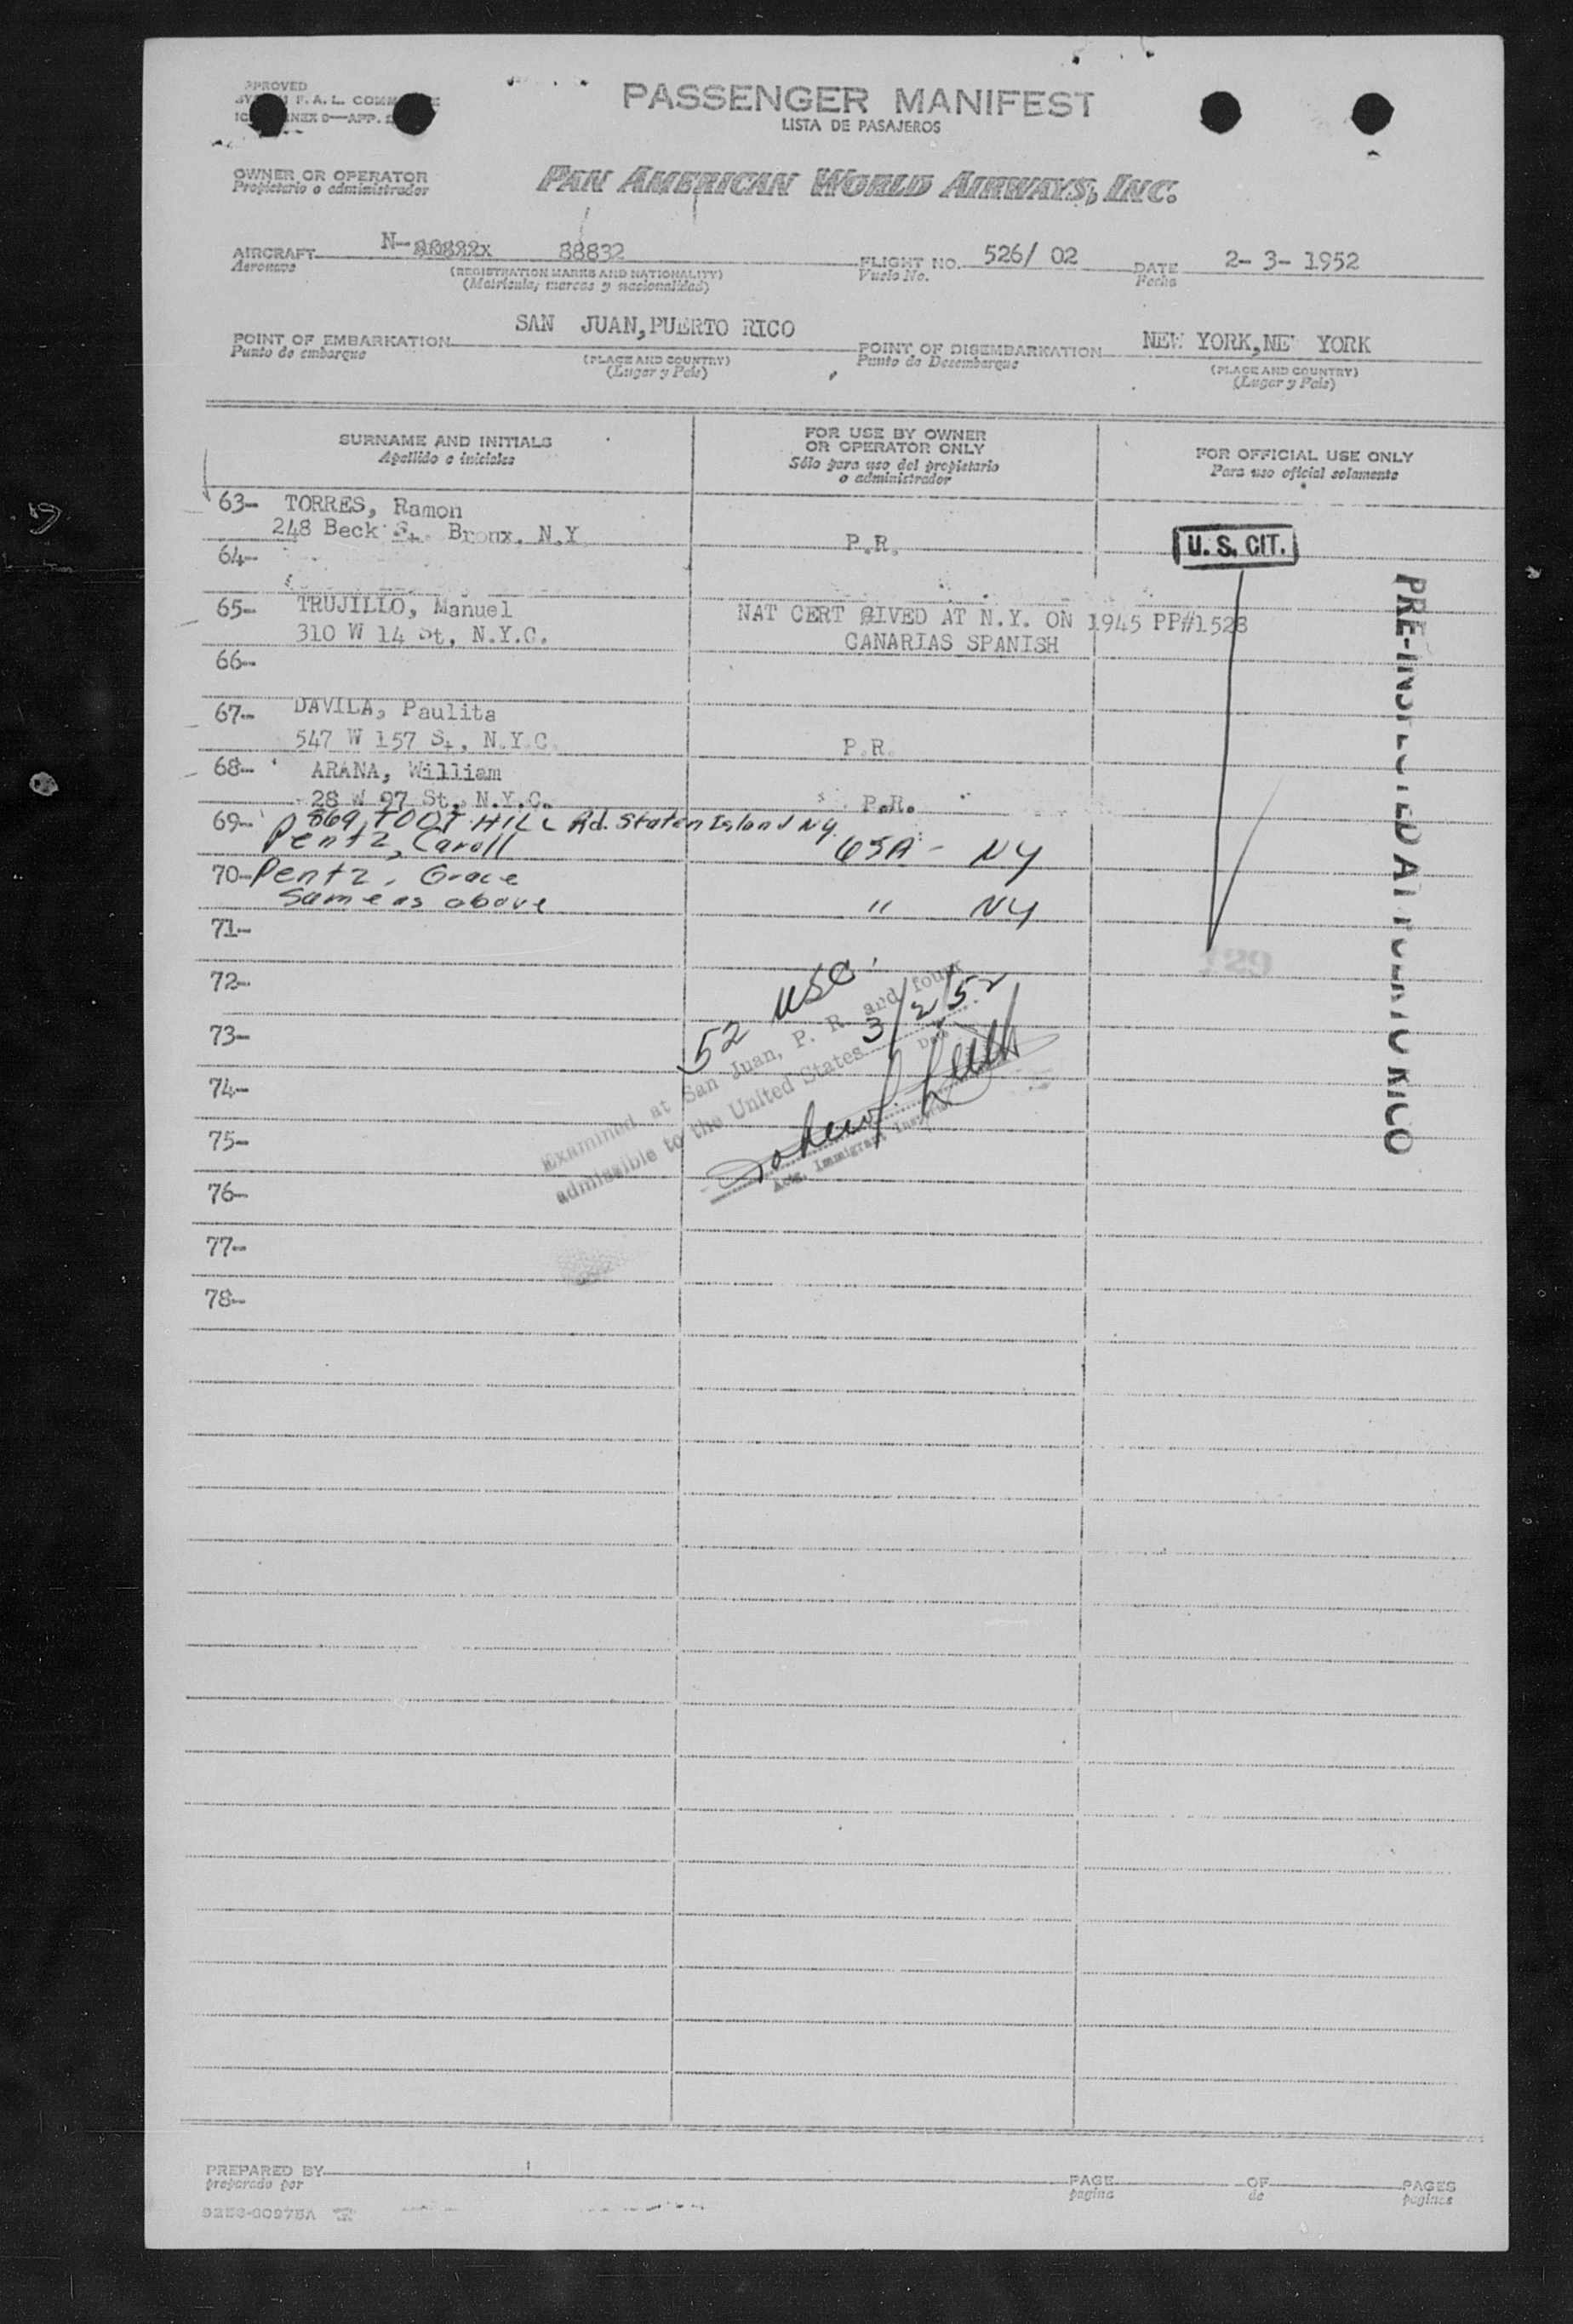 PASSENGER MANIFEST
LISTA DE PASAJEROS
OWNER OR OPERATOR
Propietario o administrador
PAN AMERICAN WORLD AIRWAYS, INC.
AIRCRAFT N- 88832 FLIGHT NO. 526/ 02 DATE 2- 3- 1952
Aeronave (REGISTRATION MARKS AND NATIONALITY) Vuelo No. Fecha
(Matricula, marcas y nacionalidad)
POINT OF EMBARKATION SAN JUAN, PUERTO RICO POINT OF DISEMBARKATION NEW YORK, NEW YORK
Punto de embarque (PLACE AND COUNTRY) Punto de Desembarque (PLACE AND COUNTRY)
(Lugar y País) (Lugar y País)
SURNAME AND INITIALS FOR USE BY OWNER OR OPERATOR ONLY FOR OFFICIAL USE ONLY
Apellido e iniciales Sólo para uso del propietario o administrador Para uso oficial solamente
63- TORRES, Ramon
248 Beck St. Bronx. N.Y. P.R. U. S. CIT.
64-
65- TRUJILLO, Manuel NAT CERT GIVED AT N.Y. ON 1945 PP#1528
310 W 14 St, N.Y.C. CANARIAS SPANISH
66-
67- DAVILA, Paulita
547 W 157 St, N.Y.C. P.R.
68- ARANA, William
28 W 97 St, N.Y.C. P.R.
69- 869 TODT HILL Rd. Staten Island NY.
Pentz, Caroll USA - NY
70- Pentz, Grace
Same as above " NY
71-
129
72-
52 USC
73-
74-
75-
76-
77-
78-
Examined at San Juan, P. R. and found
admissible to the United States 3/2/52
Date
Actg. Immigrant Inspector
PRE-INSPECTED AT PUERTO RICO
PREPARED BY PAGE OF PAGES
preparado por pagina de paginas